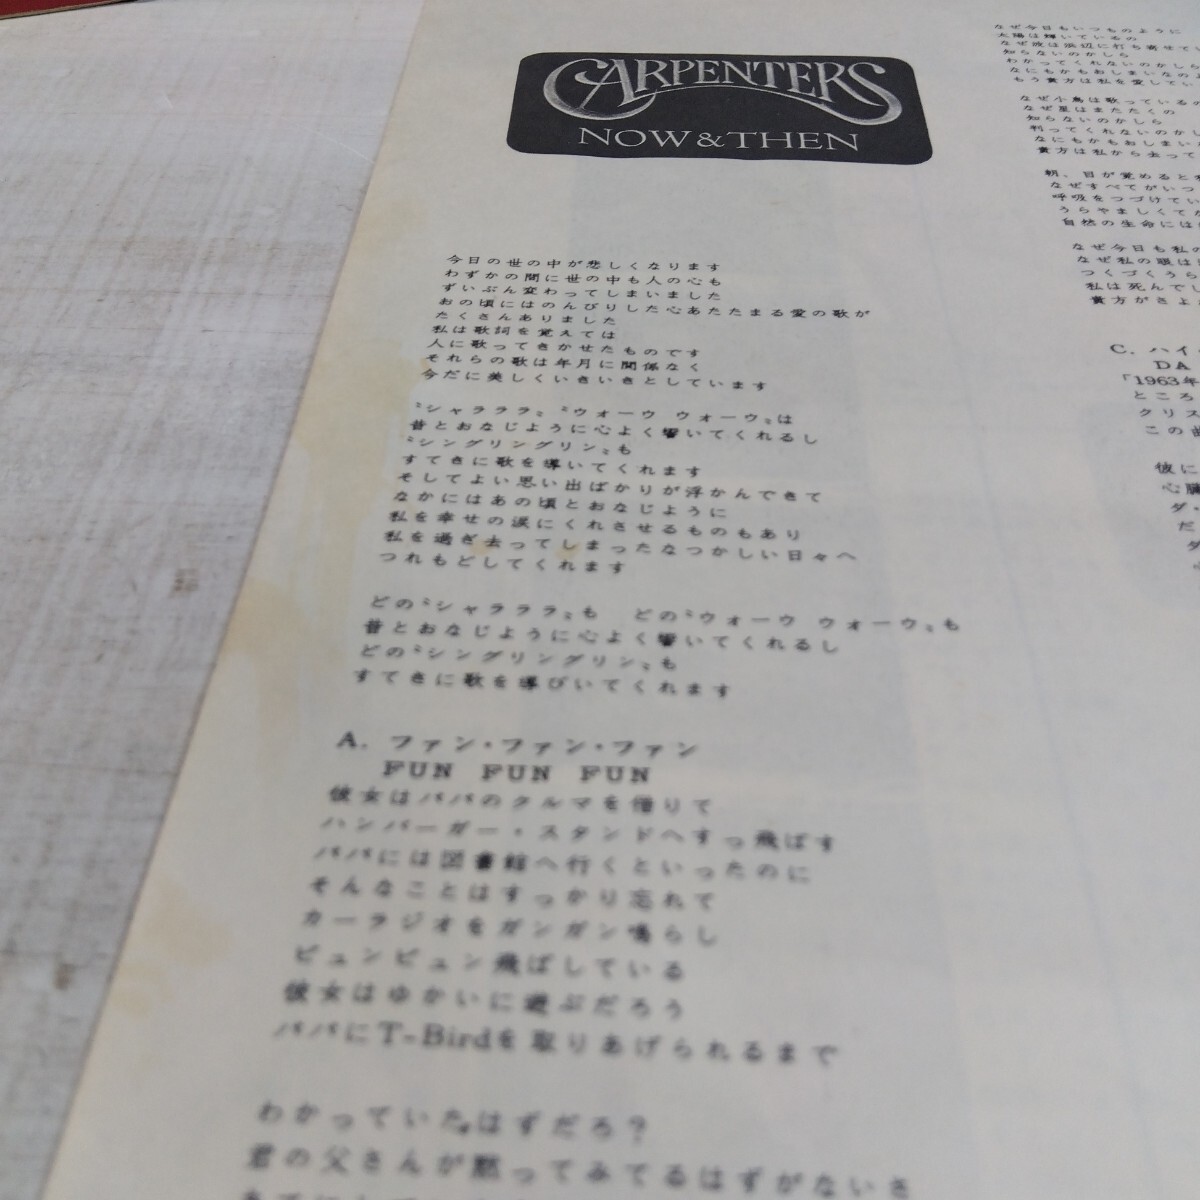 CARPENTERS
NOW & THEN
今日の世の中が悲しくなります
わずかの間に世の中も人の心も
ずいぶん変わってしまいました
おの頃にはのんびりした心あたたまる愛の歌が
たくさんありました
私は歌詞を覚えては
人に歌ってきかせたものです
それらの歌は年月に関係なく
今だに美しくいきいきとしています
〝シャラララ〟〝ウォーウ ウォーウ〟は
昔とおなじように心よく響いてくれるし
〝シングリングリン〟も
すてきに歌を導いてくれます
そしてよい思い出ばかりが浮かんできて
なかにはあの頃とおなじように
私を幸せの涙にくれさせるものもあり
私を過ぎ去ってしまったなつかしい日々へ
つれもどしてくれます
どの〝シャラララ〟も どの〝ウォーウ ウォーウ〟も
昔とおなじように心よく響いてくれるし
どの〝シングリングリン〟も
すてきに歌を導びいてくれます
A. ファン・ファン・ファン
FUN FUN FUN
彼女はパパのクルマを借りて
ハンバーガー・スタンドへすっ飛ばす
パパには図書館へ行くといったのに
そんなことはすっかり忘れて
カーラジオをガンガン鳴らし
ビュンビュン飛ばしている
彼女はゆかいに遊ぶだろう
パパにT-Birdを取りあげられるまで
わかっていたはずだろ?
君の父さんが黙ってみてるはずがないさ
なぜ今日もいつものように
太陽は輝いているの
なぜ波は浜辺に打ち寄せてい
知らないのかしら
わかってくれないのかしら
なにもかもおしまいなの
もう貴方は私を愛してい
なぜ小鳥は歌っているの
なぜ星はまたたくの
知らないのかしら
判ってくれないのかし
なにもかもおしまい
貴方は私から去って
朝、目が覚めると
なぜすべてがいつ
呼吸をつづけてい
うらやましくて
自然の生命には
なぜ今日も私の
なぜ私の眼は
つくづくうら
私は死んでし
貴方がさよ
C. ハイ
DA
「1963年
ところ
クリス
この
彼に
心臓
ダ・
だ